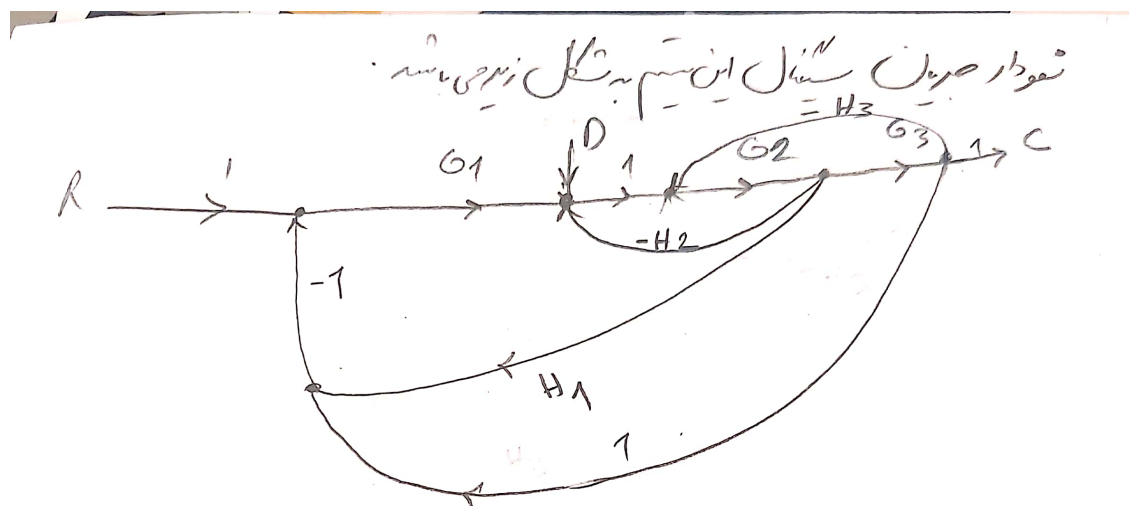 نمودار جریان سیگنال این سیستم به شکل زیر می باشد.
= H3
D
G3
G2
1
C
1
G1
1
R
-H2
-1
H1
1